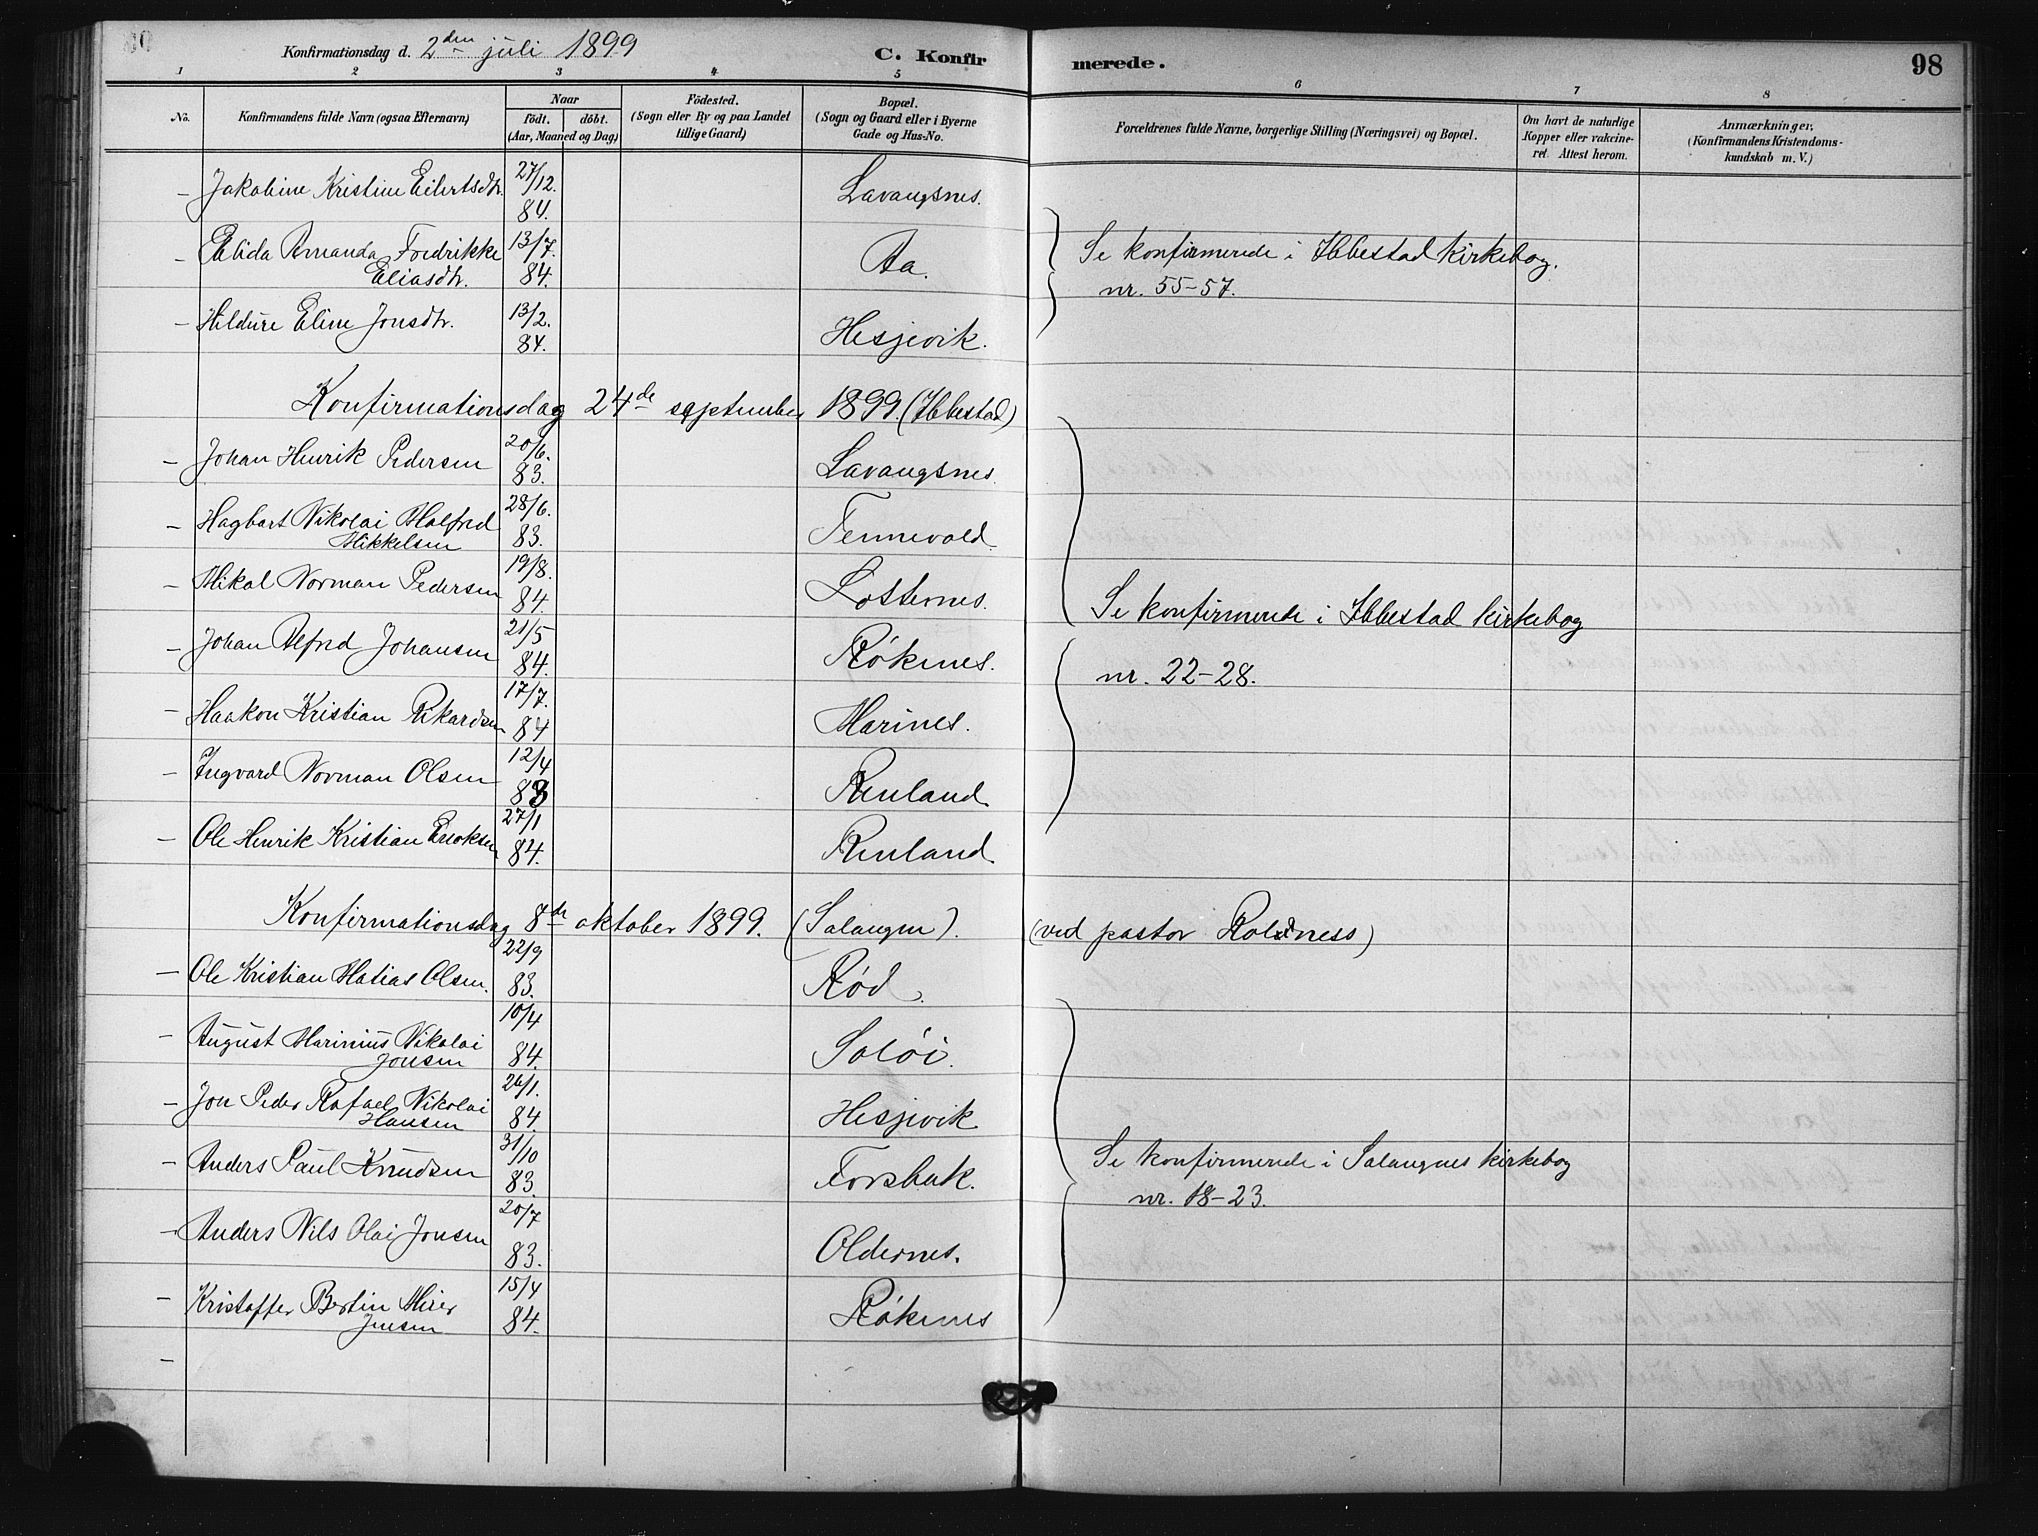 Konfirmationsdag d. 2den juli 1899
C. Konfirmerede.
98
1 2 3 4 5 6 7 8
No.
Konfirmandens fulde Navn (ogsaa Efternavn)
Naar
födt. döbt.
(Aar, Maaned og Dag)
Födested.
(Sogn eller By og paa Landet
tillige Gaard)
Bopæl.
(Sogn og Gaard eller i Byerne
Gade og Hus-No.
Forældrenes fulde Navne, borgerlige Stilling (Næringsvei) og Bopæl.
Om havt de naturlige
Kopper eller vakcine-
ret. Attest herom.
Anmærkninger.
(Konfirmandens Kristendoms-
kundskab m. V.)
- Jakobine Kristine Eilertsdtr. 27/12. 84. Lavangsnes.
- Elida Amanda Fredrikke Eliasdtr. 13/7. 84. Aa.
Se konfirmerede i Ibbestad kirkebog.
nr. 55-57.
- Hildure Eline Jonsdtr. 13/2. 84. Hesjevik.
Konfirmationsdag 24de september 1899. (Ibbestad)
- Johan Henrik Pedersen 20/6. 83. Lavangsnes.
- Hagbart Nikolai Malfred Mikkelsen 28/6. 83. Tennevold.
- Mikal Norman Pedersen 19/8. 84. Lotternes.
Se konfirmerede i Ibbestad kirkebog
- Johan Alfred Johansen 21/5 84. Rökenes.
nr. 22-28.
- Haakon Kristian Rikardsen 17/7. 84 Marines.
- Ingvard Norman Olsen 12/4 83 Renland.
- Ole Henrik Kristian Enoksen 27/1 84. Renland.
Konfirmationsdag 8de oktober 1899. (Salangen). (ved pastor Roldness)
- Ole Kristian Matias Olsen. 22/9 83. Rød.
- August Marinius Nikolai Jonsen 10/4 84. Soløi.
- Jon Peder Rafael Nikolai Hansen 26/1. 84. Hesjevik
- Anders Paul Knudsen 31/10 83. Forsbak.
Se konfirmerede i Salangnes kirkebog
nr. 18-23.
- Anders Nils Olai Jonsen 20/7 83. Oldernes.
- Kristoffer Bertin Meier Jensen 15/4 84. Rökenes
-